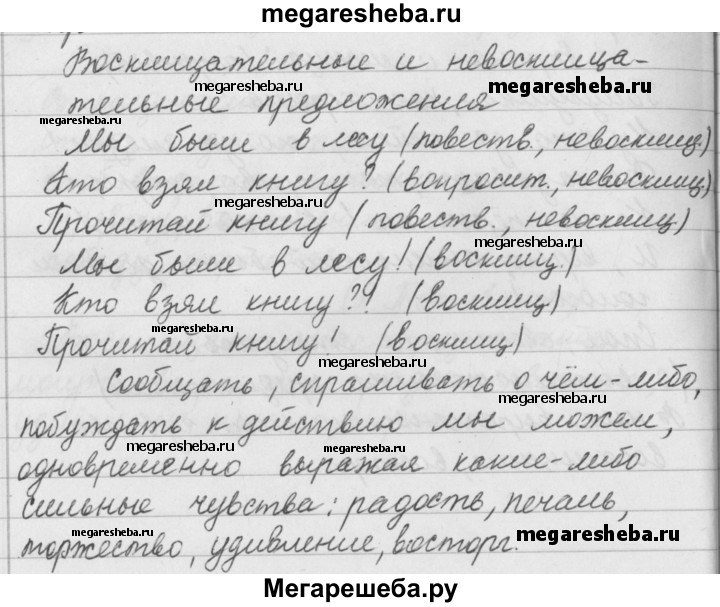 megaresheba.ru
Восклицательные и невосклица-
megaresheba.ru
megaresheba.ru
тельные предложения
megaresheba.ru
megaresheba.ru
Мы были в лесу (повеств., невосклиц.)
megaresheba.ru
Кто взял книгу? (вопросит., невосклиц.)
Прочитай книгу (повеств., невосклиц)
megaresheba.ru
megaresheba.ru
Мы были в лесу! (восклиц.)
Кто взял книгу?! (восклиц)
megaresheba.ru
Прочитай книгу! (восклиц)
megaresheba.ru
Сообщать, спрашивать о чём-либо,
побуждать к действию мы можем,
megaresheba.ru
одновременно выражая какие-либо
сильные чувства: радость, печаль,
megaresheba.ru
megaresheba.ru
торжество, удивление, восторг.
Мегарешеба.ру